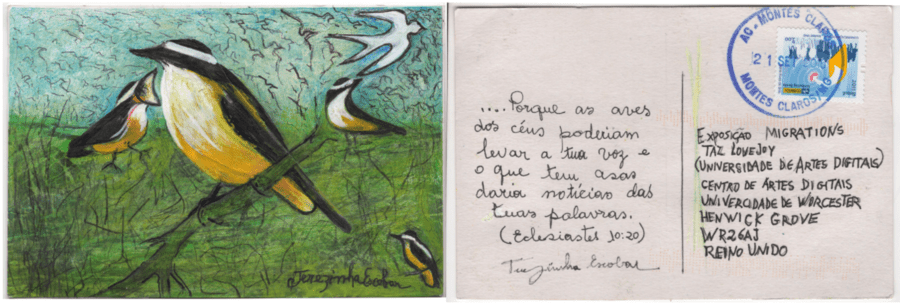 Terezinha Escobar
AC - MONTES CLAROS
21 SET
MONTES CLAROS/MG
....Porque as aves
dos céus poderiam
levar a tua voz e
o que tem asas
daria notícias das
tuas palavras.
(Eclesiastes 10:20)
Terezinha Escobar
EXPOSIÇÃO MIGRATIONS
TAZ LOVEJOY
(UNIVERSIDADE DE ARTES DIGITAIS)
CENTRO DE ARTES DIGITAIS
UNIVERCIDADE DE WORCESTER
HENWICK GROVE
WR26AJ
REINO UNIDO